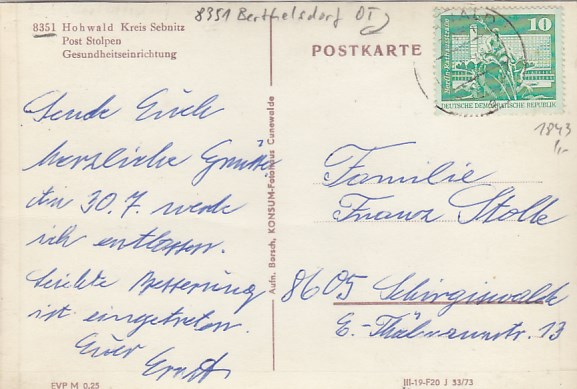 8351 Berthelsdorf OT
8351 Hohwald Kreis Sebnitz
Post Stolpen
Gesundheitseinrichtung
POSTKARTE
10
Berlin-Rathausstraße
DEUTSCHE DEMOKRATISCHE REPUBLIK
1843
1,-
Sende Euch
herzliche Grüße
den 30.7. werde
ich entlassen.
Leichte Besserung
ist eingetreten.
Euer Ernst
Aufn. Borsch, KONSUM-Fotohaus Cunewalde
Familie
Franz Stolle
8605 Schirgiswalde
E.-Thälmannstr. 13
EVP M 0,25
III-19-F20 J 53/73